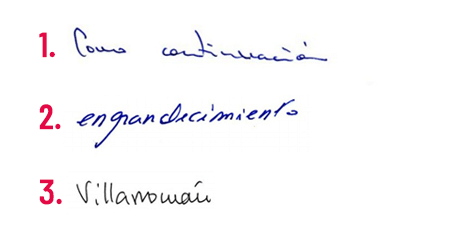 1. Como continuación
2. engrandecimiento
3. Villarromán